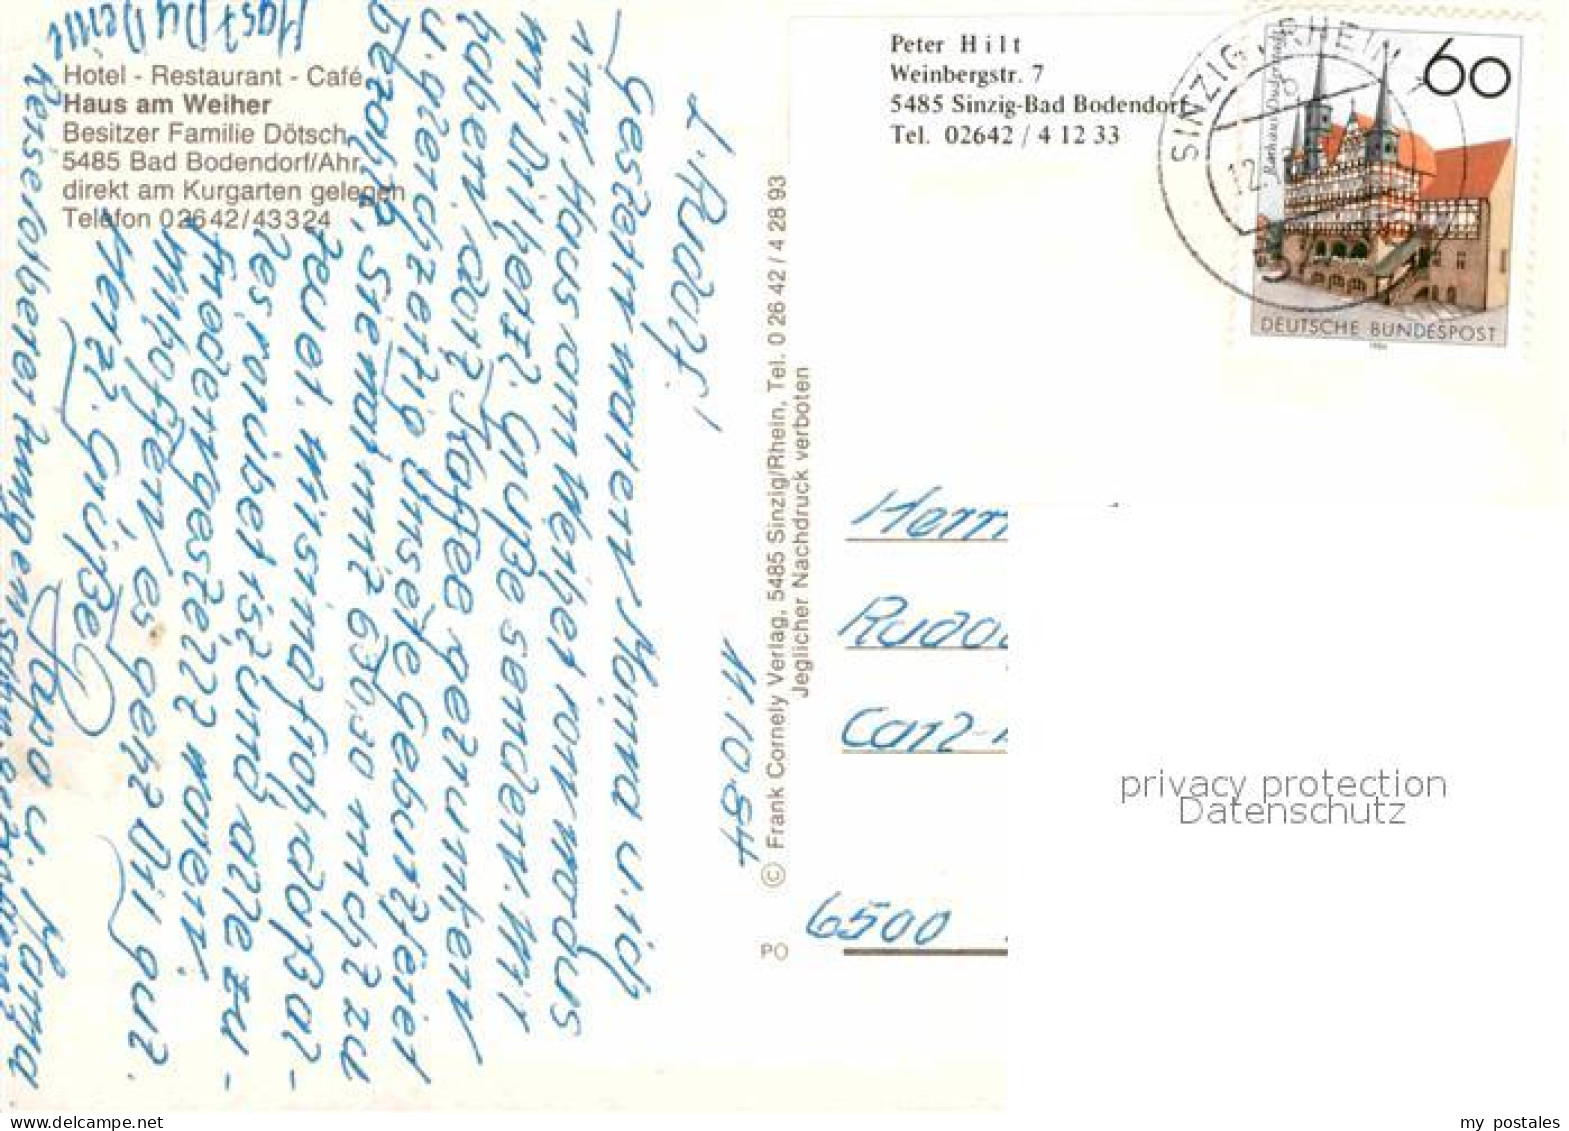 Hotel - Restaurant - Café
Haus am Weiher
Besitzer Familie Dötsch
5485 Bad Bodendorf/Ahr
direkt am Kurgarten gelegen
Telefon 02642/43324
11.10.84
L. Rudolf!
Gestern waren Mama u. ich
im Haus am Weiher von wo aus
wir Dir herzl. Grüße senden. Wir
haben dort Kaffee getrunken
u. gleichzeitig unsere Geburtsfeier
bezahlt, sie war mit 630,30 nicht zu
teuer. Wir sind froh, daß al-
les vorüber ist und alle zu-
friedengestellt waren.
Wir hoffen, es geht Dir gut.
Herzl. Grüße
Papa u. Mama
Hast Du Deine
Reisevorbereitungen schon
© Frank Cornely Verlag, 5485 Sinzig/Rhein, Tel. 0 26 42 / 4 28 93
Jeglicher Nachdruck verboten
PO
Peter Hilt
Weinbergstr. 7
5485 Sinzig-Bad Bodendorf
Tel. 02642 / 4 12 33
SINZIG, RHEIN
12
60
Rathaus Duderstadt
DEUTSCHE BUNDESPOST
1984
Herrn
Rudol
Carl-
6500
privacy protection
Datenschutz
my postales